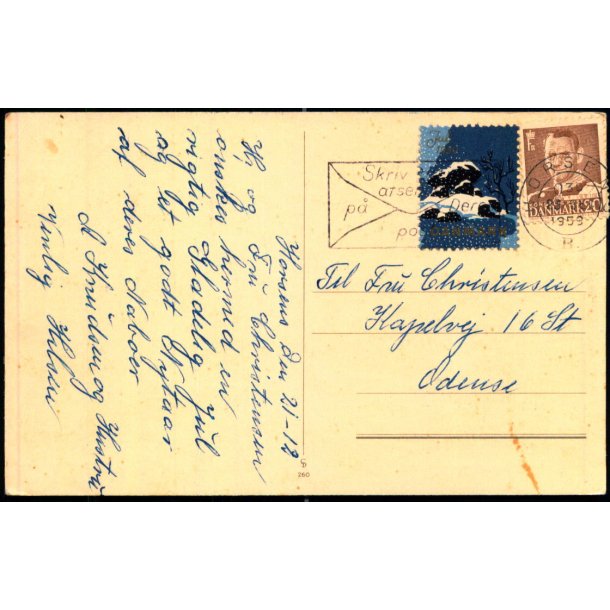 Horsens Den 21-12
Hr og Fru Christensen
ønskes hermed en
rigtig Glædelig Jul
og et godt Nytaar
af deres Naboer
A Knudsen og Hustru
Venlig Hilsen
Skriv
afsen
på
Der
po
DANMARK 20
HORSENS
1959
B
Til Fru Christensen
Kapelvej 16 St
Odense
260